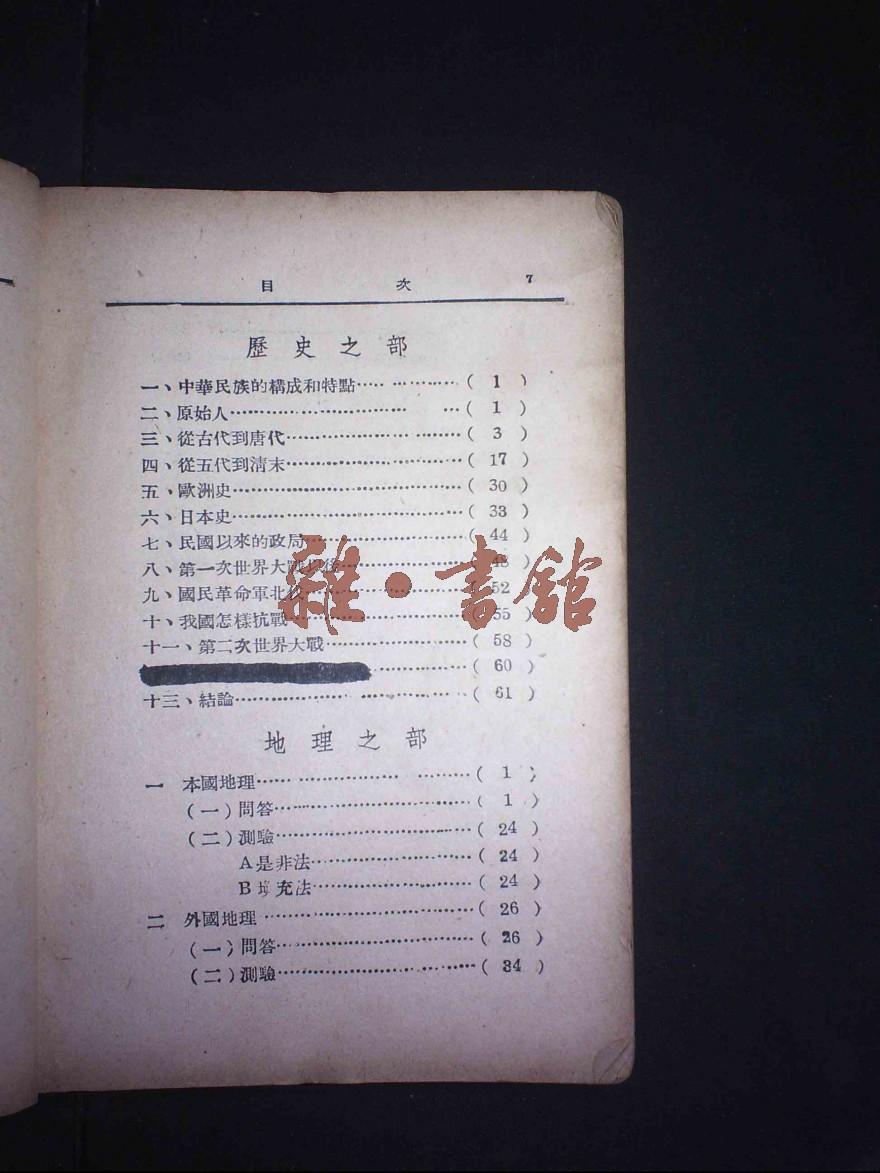 目次 7
歷史之部
一、中華民族的構成和特點…………………( 1 )
二、原始人…………………( 1 )
三、從古代到唐代…………………( 3 )
四、從五代到清末…………………( 17 )
五、歐洲史…………………( 30 )
六、日本史…………………( 33 )
七、民國以來的政局…………………( 44 )
八、第一次世界大戰以後…………………( 48 )
九、國民革命軍北伐…………………( 52 )
十、我國怎樣抗戰…………………( 55 )
十一、第二次世界大戰…………………( 58 )
…………( 60 )
十三、結論…………………( 61 )
地理之部
一 本國地理…………………( 1 )
(一)問答…………………( 1 )
(二)測驗…………………( 24 )
A是非法…………………( 24 )
B填充法…………………( 24 )
二 外國地理…………………( 26 )
(一)問答…………………( 26 )
(二)測驗…………………( 34 )
雜·書館